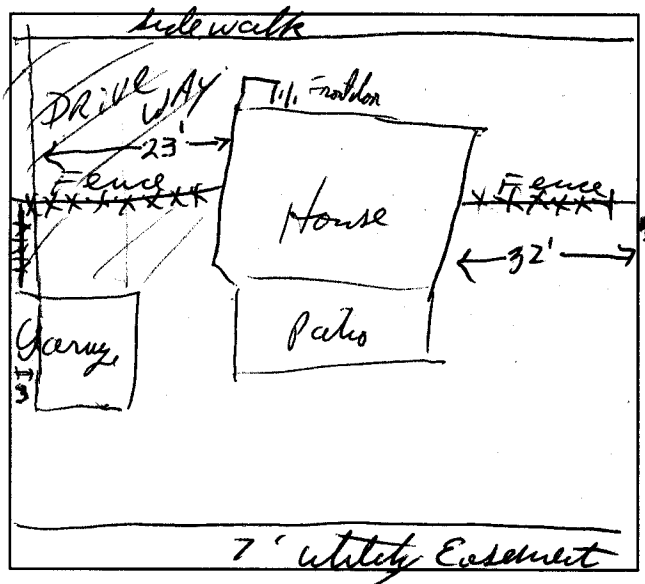 sidewalk
DRiveWAY
Front door
23'
Fence
House
Fence
32'
Garage
Patio
3
7' utility Easement